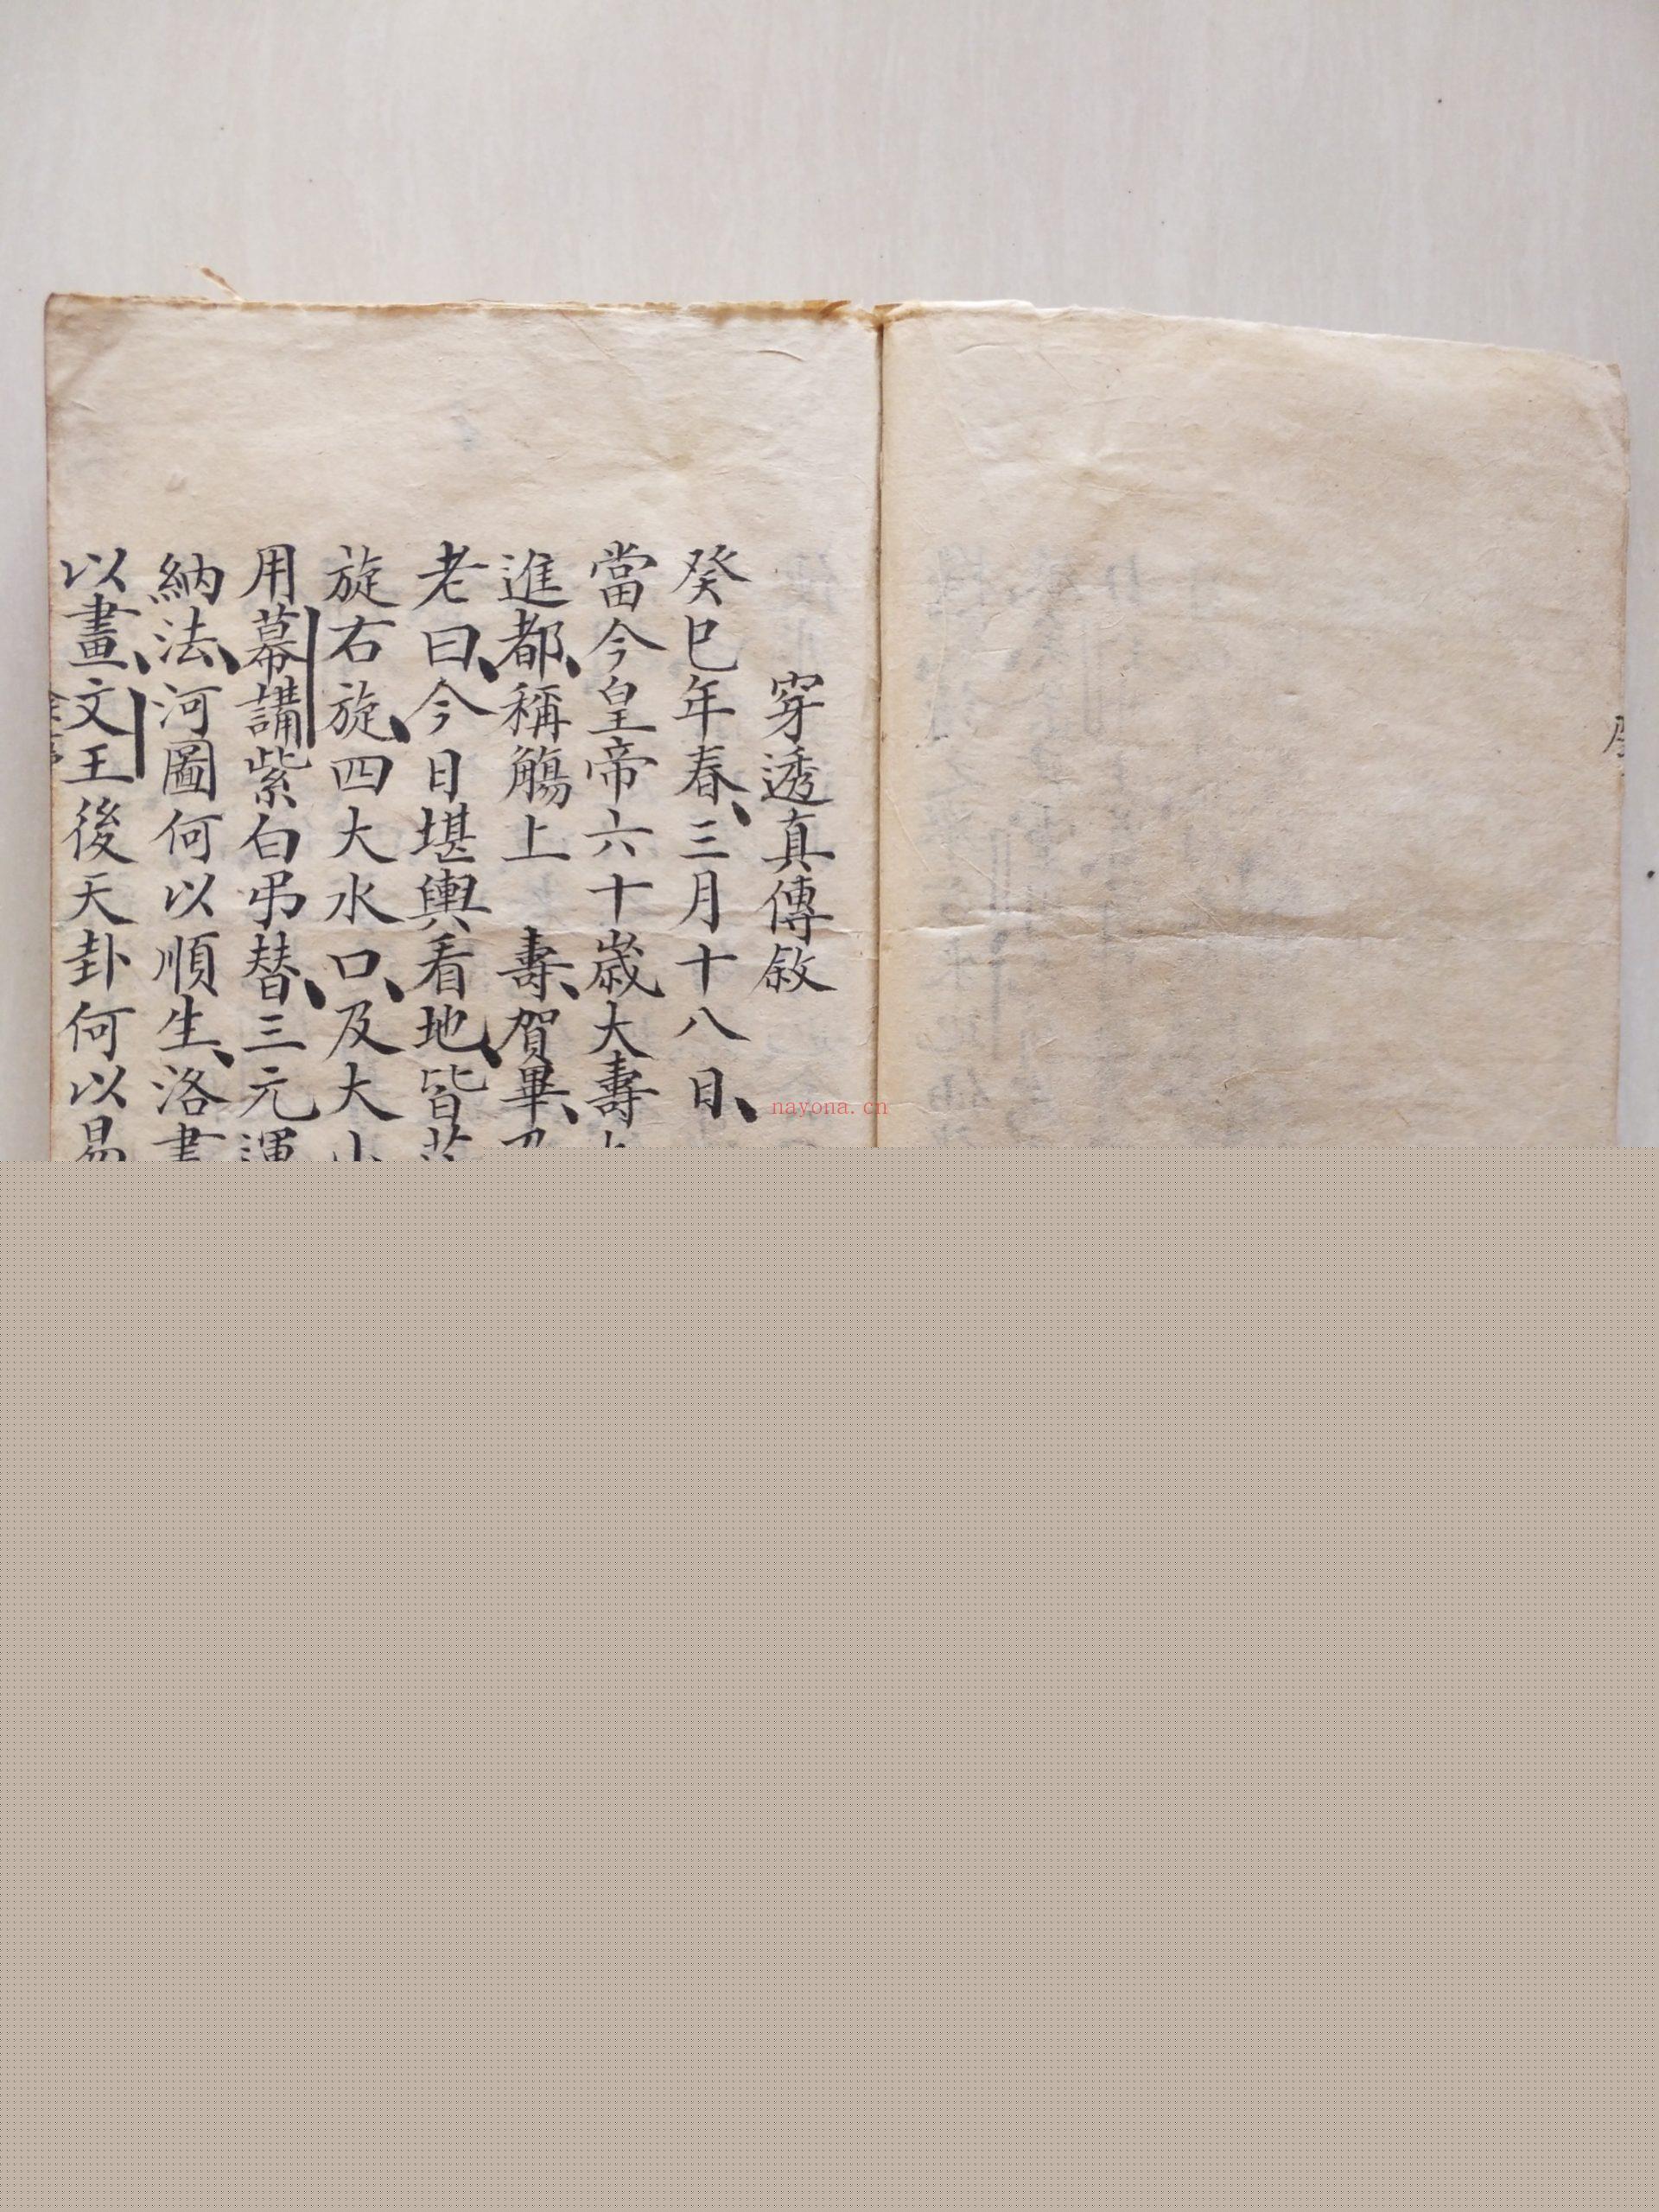 穿透真傳敘
癸巳年春、三月十八日、
當今皇帝六十歲大壽
進都、稱觴上 壽、賀畢、
老曰、今日堪輿看地、皆
旋右旋、四大水口、及大
用幕講紫白弔替、三元運
納法、河圖何以順生、洛書
以畫、文王後天卦何以易
nayona.cn